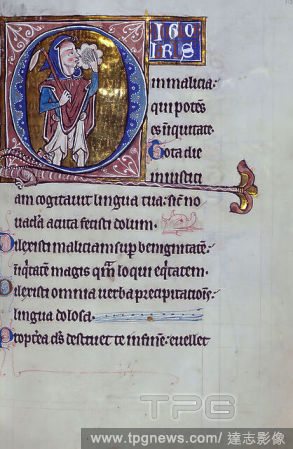 in malicia:
qui potēs
es ī iniquitate.
Tota die
iniustici
am cogitavit lingua tua: sic̄ no
vacla acuta fecisti dolum.
Dilexisti maliciam sup benignitatē:
iniq̄tatē magis qm̄ loqui eq̄tatem.
Dilexisti omnia verba precipitacionis:
lingua dolosa.
Propt̄ea dš destruet te in finē: evellet
TPG
www.tpgnews.com/達志影像